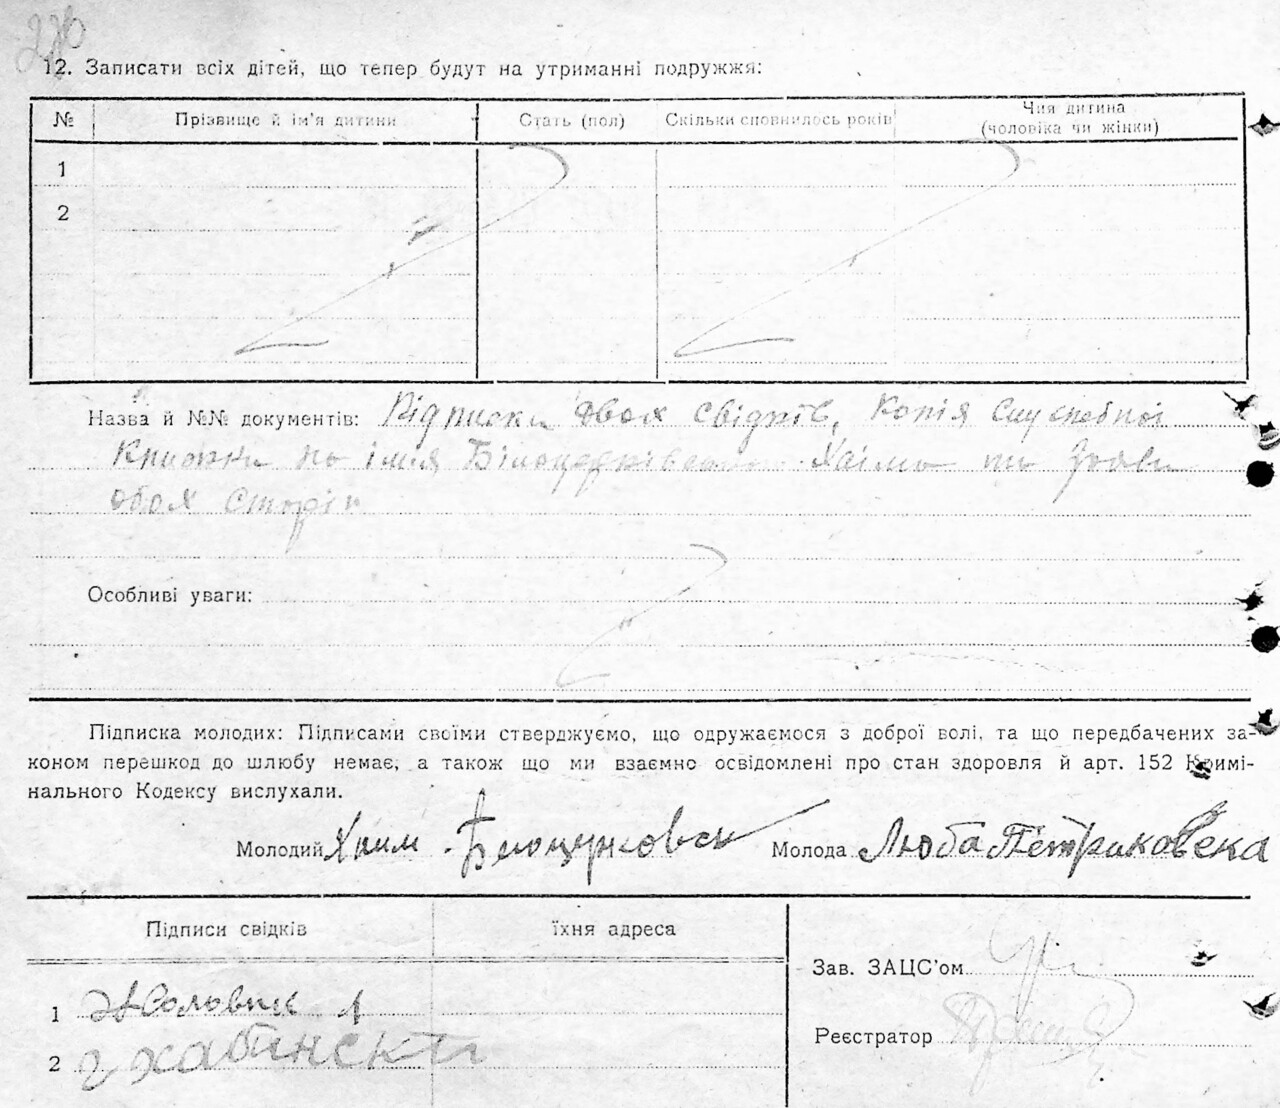 226
12. Записати всіх дітей, що тепер будут на утриманні подружжя:
№ Прізвище й ім'я дитини Стать (пол) Скільки сповнилось років Чия дитина
(чоловіка чи жінки)
1
2
Назва й №№ документів: Підписки двох свідків, Копія Службної
Книжки на імия Білоцерківського Хаіма та Заяви
обох сторін
Особливі уваги:
Підписка молодих: Підписами своїми стверджуємо, що одружаємося з доброї волі, та що передбачених за-
коном перешкод до шлюбу немає, а також що ми взаємно освідомлені про стан здоровля й арт. 152 Кримі-
нального Кодексу вислухали.
Молодий Хаим Белоцерковск Молода Люба Петриковська
Підписи свідків їхня адреса
Зав. ЗАЦС'ом
1
Реєстратор
2 Хабински